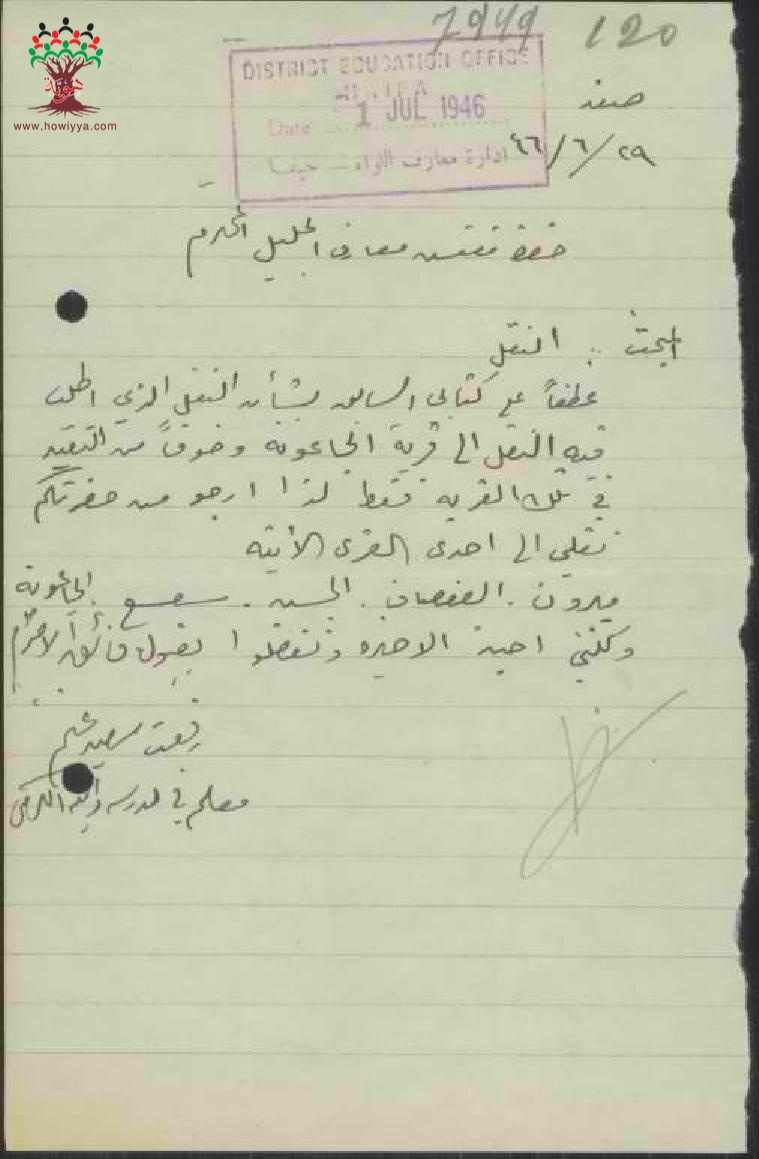 7949 120
DISTRICT EDUCATION OFFICE
HAIFA
Date 1 JUL 1946
ادارة معارف اللواء ــ حيفا
هوية
www.howiyya.com
صفد
٢٩/٦/٤٦
حضرة مفتش معارف الجليل المحترم
المبحث : النقل
عطفاً على كتابي السابق بشأن النقل الذي اطلب
فيه النقل الى قرية الجاعونة وخوفاً من التقيد
في تلك القرية فقط لذا ارجو من حضرتكم
نقلي الى احدى القرى الآتية
ميرون . الصفصاف . الجش . سعسع . الجاعونة
ولكنني احبذ الاخيرة وتفضلوا بقبول فائق الاحترام
رفعت سعيد
معلم في مدرسة